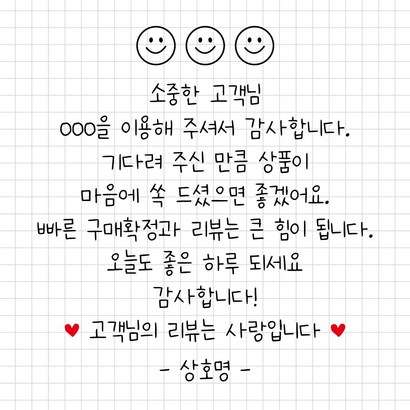 소중한 고객님
OOO을 이용해 주셔서 감사합니다.
기다려 주신 만큼 상품이
마음에 쏙 드셨으면 좋겠어요.
빠른 구매확정과 리뷰는 큰 힘이 됩니다.
오늘도 좋은 하루 되세요
감사합니다!
♥ 고객님의 리뷰는 사랑입니다 ♥
- 상호명 -